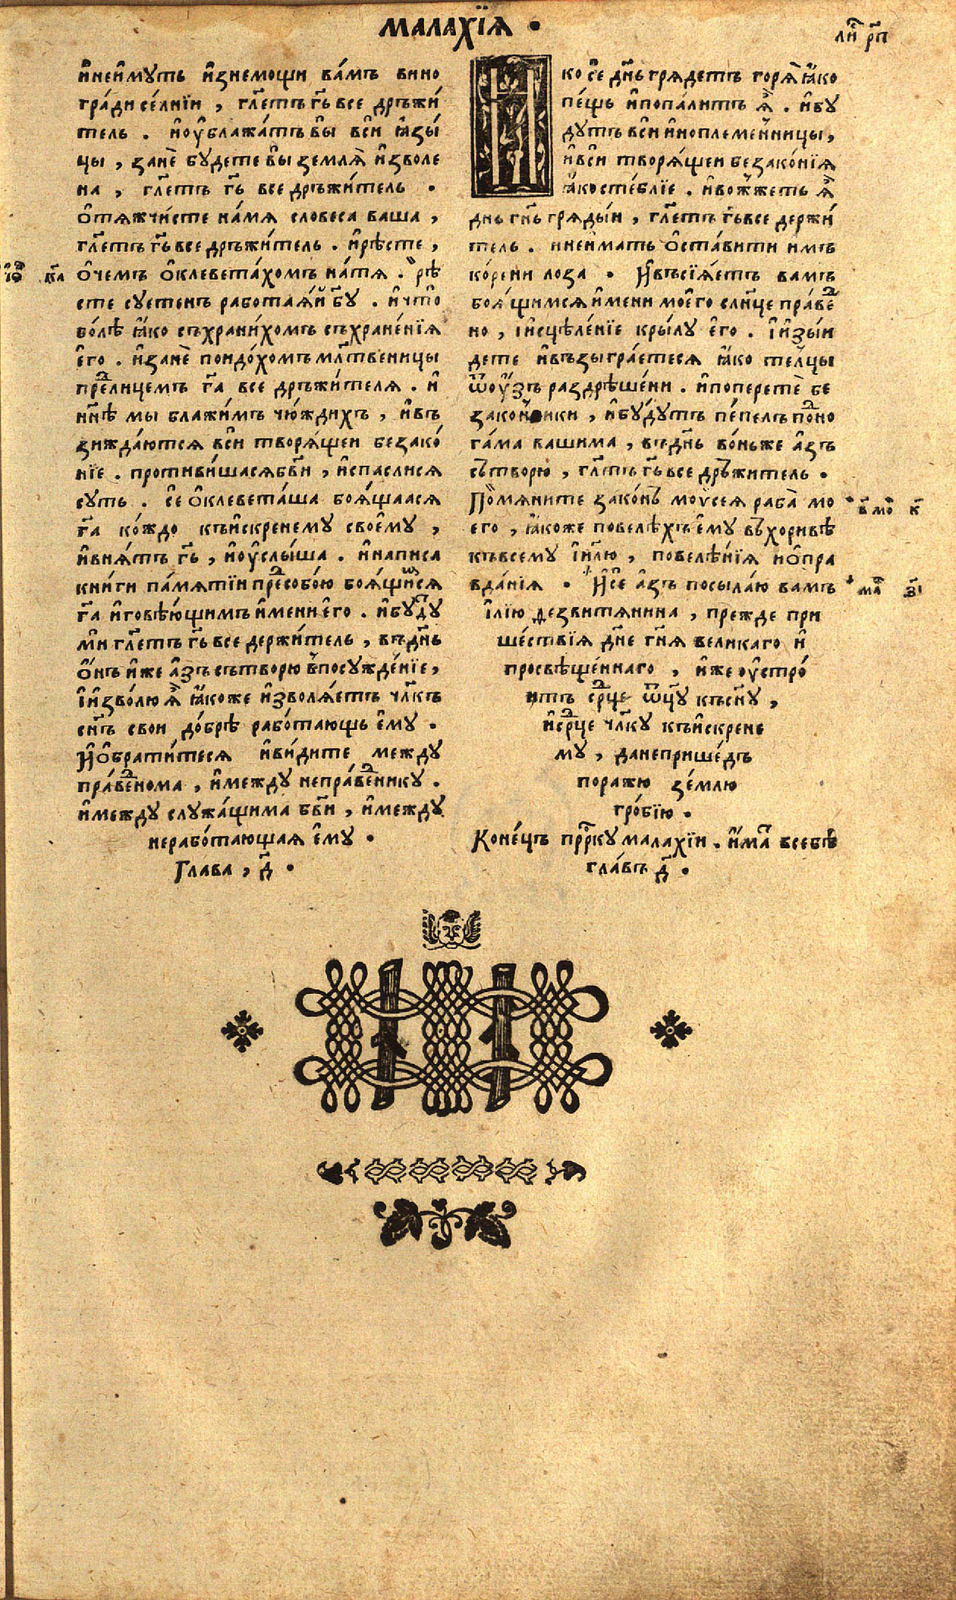 МАЛАХЇꙖ ·
ли́ рп҃
и҆неи҆мꙋть и҆знемощи ва́мъ вино
гра́ди се́лнїи , гл҃етъ гь҃ все дръжи́
тель . и҆оу҆блажа́тъ вы̀ вси̑ ꙗ҆зы́
цы , занѐ бꙋ́дете вы̀ землѧ̀ и҆зволе
на , гл҃етъ гь҃ все дръжи́тель ·
ѻ҆тѧжчи́сте на́мѧ словеса ваша ,
гл҃етъ гь҃ все дръжи́тель . и҆рѣ́сте ,
ѻ҆чемъ ѻ҆клевета́хомъ на́тѧ . рѣ́
сте сꙋетенъ работаѧи бг҃ꙋ . и҆что̀
бо́лѣ ꙗ҆ко съхрани́хомъ съхране́нїѧ
є҆го . и҆занѐ поидо́хомъ мл҃твеницы
предлицемъ га҃ все дръжи́телѧ . и҆
нн҃ѣ мы блажи́мъ чюждихъ , и҆въ
зижда́ютсѧ вси̑ творѧ́щеи безако́
нїе . противи́шасѧбв҃и , и҆спаслисѧ
сꙋть . сѐ ѻ҆клевета́ша боѧ́щаасѧ
га҃ ко́ждо къи҆скренемꙋ своемꙋ̀ ,
и҆внѧ́тъ гь҃ , и҆оу҆слы́ша . и҆написа
кни́ги па́мѧтїи пред̾собо́ю боѧ́щимсѧ
га҃ и҆говѣ́ющимъ и҆мени є҆го . и҆бꙋ́дꙋ
ми гл҃етъ гь҃ все держи́тель , въдн҃ь
ѻ҆нъ и҆же а҆зъ сътворю̀ въпосꙋжде́нїе ,
і҆и҆зво́лю ѧ҆̀ ꙗ҆коже и҆зволѧ́етъ чл҃къ
сн҃ъ свои до́брѣ рабо́тающь є҆мꙋ ·
И҆ѻ҆брати́тесѧ и҆ви́дите междꙋ
пра́веднома , и҆междꙋ непра́ведникꙋ .
и҆междꙋ слꙋжа́щима бв҃и , и҆междꙋ
неработающаѧ є҆мꙋ ·
Глава , д҃ ·
і҆ѻ҆ ка
ко сѐ дн҃ь грѧде́тъ горѧ̀ ꙗ҆ко
пе́щь и҆попали́тъ ѧ҆̀ . и҆бꙋ
дꙋтъ вси̑ и҆ноплеме́нницы ,
и҆вси̑ творѧ́щеи безако́нїѧ
ꙗ҆косте́блїе . и҆вожже́ть ѧ҆̀
дн҃ь гн҃ь грѧды́и , гл҃етъ гь҃ все держи́
тель . и҆неи҆мать ѻ҆ста́вити и҆мъ
ко́рени лоза · И҆въсїѧ́етъ вамъ
боѧ́щимсѧ и҆мени моего̀ слн҃це пра́вед
но , і҆исцѣле́нїе кры́лꙋ є҆го . і҆и҆зы́и
дете и҆възыгра́етесѧ ꙗ҆ко телцы̀
ѿоу҆́зъ раздрѣше́ни . и҆поперетѐ бе
закон́ники , и҆бꙋ́дꙋтъ пе́пелъ подно
га́ма вашима , въдн҃ь во́ньже а҆́зъ
сътворю , гл҃етъ гь҃ все дръжитель ·
Помѧните зако́нъ мо́ѵсеѧ раба̀ мо
его , ꙗ҆коже повелѣ́хъ є҆мꙋ въхоривѣ
къвсемꙋ і҆и҃лю , повелѣ́нїѧ и҆ѻ҆пра
вда́нїѧ · И҆сѐ а҆зъ посыла́ю вамъ
і҆лїю̀ дезвитѧнина , прежде при
ше́ствїѧ дн҃е гн҃ѧ великаго и҆
просвѣще́ннаго , и҆же оу҆стро́
итъ ср҃дце ѿц҃ꙋ късн҃ꙋ ,
и҆ср҃дце чл҃кꙋ къи҆скрене
мꙋ , данеприше́дъ
поражю зе́млю
гро́бїю ·
Коне́цъ прр҃кꙋ малахїи . и҆́мат̾ всебѣ̀
гла́въ д҃ ·
в҃ мо к҃
ма зі҃